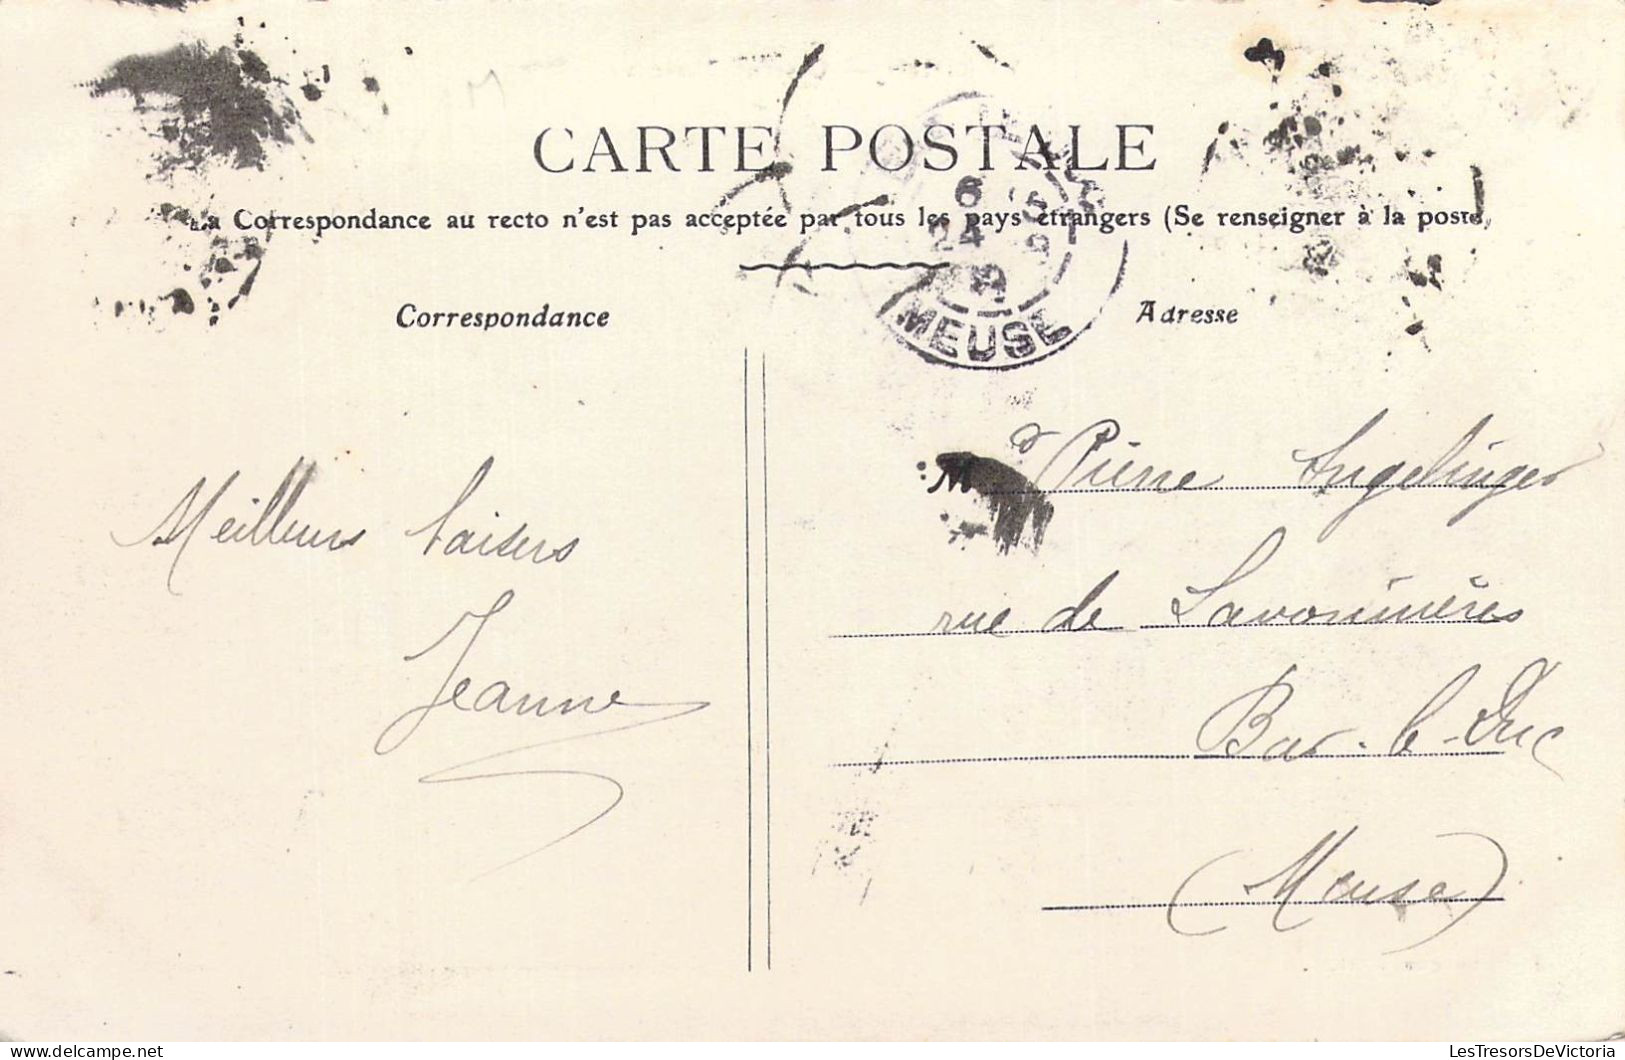 CARTE POSTALE
La Correspondance au recto n'est pas acceptée par tous les pays étrangers (Se renseigner à la poste)
Correspondance
Adresse
6
24
MEUSE
Meilleurs baisers
Jeanne
M Pierre Angelinger
rue de Savonnières
Bar-le-Duc
(Meuse)
LesTresorsDeVictoria
LesTresorsDeVictoria